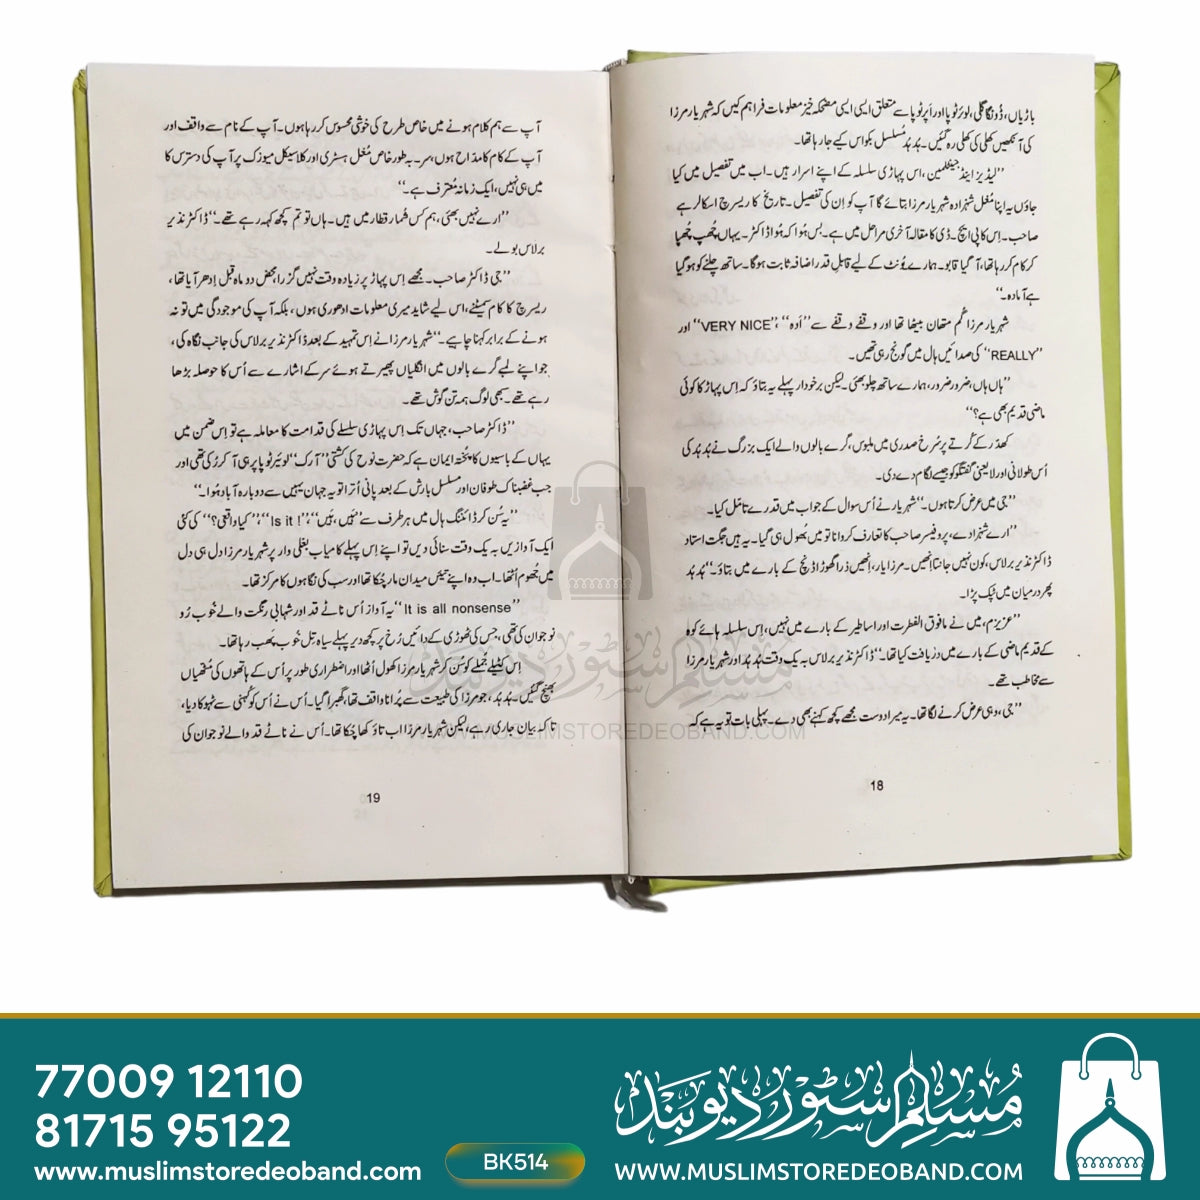 باڑیاں، ڈونگا گلی، لوئر ٹوپا اور اَپر ٹوپا سے متعلق ایسی ایسی مضحکہ خیز معلومات فراہم کیں کہ شہریار مرزا
کی آنکھیں کھلی کی کھلی رہ گئیں۔ ہُدہُد مُسلسل بکواس کیے جا رہا تھا۔
”لیڈیز اینڈ جینٹلمین، اس پہاڑی سلسلہ کے اپنے اسرار ہیں۔ اب میں تفصیل میں کیا
جاؤں یہ اپنا مُغل شہزادہ شہریار مرزا بتائے گا آپ کو اِن کی تفصیل۔ تاریخ کا ریسرچ اسکالر ہے
صاحب۔ اِس کا پی ایچ۔ ڈی کا مقالہ آخری مراحل میں ہے۔ بس ہُوا کہ ہُوا ڈاکٹر۔ یہاں چُھپ چُھپا
کر کام کر رہا تھا، آ گیا قابو۔ ہمارے یُونٹ کے لیے قابلِ قدر اضافہ ثابت ہوگا۔ ساتھ چلنے کو ہو گیا
ہے آمادہ۔“
شہریار مرزا گُم متھان بیٹھا تھا اور وقفے وقفے سے ”اَوہ“، ”VERY NICE“ اور
”REALLY“ کی صدائیں ہال میں گونج رہی تھیں۔
”ہاں ہاں، ضرور ضرور، ہمارے ساتھ چلو بھئی۔ لیکن برخوردار پہلے یہ بتاؤ کہ اِس پہاڑ کا کوئی
ماضی قدیم بھی ہے؟“
کھدّر کے کُرتے پر سُرخ صدری میں ملبوس، گرے بالوں والے ایک بزرگ نے ہُدہُد کی
اُس طولانی اور لایعنی گفتگو کو جیسے لگام دے دی۔
”جی میں عرض کرتا ہوں۔“ شہریار نے اُس سوال کے جواب میں قدرے تامّل کیا۔
”ارے شہزادے، پروفیسر صاحب کا تعارف کروانا تو میں بُھول ہی گیا۔ یہ ہیں جگت استاد
ڈاکٹر نذیر برلاس، کون نہیں جانتا اِنھیں۔ مرزا یار، اِنھیں ذرا گھوڑا ڈانچ کے بارے میں بتاؤ۔“ ہُدہُد
پھر درمیان میں ٹپک پڑا۔
”عزیزم، میں نے مافوق الفطرت اور اساطیر کے بارے میں نہیں، اِس سلسلہ ہائے کوہ
کے قدیم ماضی کے بارے میں دریافت کیا تھا۔“ ڈاکٹر نذیر برلاس بہ یک وقت ہُدہُد اور شہریار مرزا
سے مخاطب تھے۔
”جی، وہی عرض کرنے لگا تھا۔ یہ میرا دوست مجھے کچھ کہنے بھی دے۔ پہلی بات تو یہ ہے کہ
18
آپ سے ہم کلام ہونے میں خاص طرح کی خوشی محسوس کر رہا ہوں۔ آپ کے نام سے واقف اور
آپ کے کام کا مدّاح ہوں، سر۔ بہ طور خاص مُغل ہسٹری اور کلاسیکل میوزک پر آپ کی دسترس کا
میں ہی نہیں، ایک زمانہ مُعترف ہے۔“
”ارے نہیں بھئی، ہم کس شمار قطار میں ہیں۔ ہاں تو تم کچھ کہہ رہے تھے۔“ ڈاکٹر نذیر
برلاس بولے۔
”جی ڈاکٹر صاحب۔ مجھے اِس پہاڑ پر زیادہ وقت نہیں گزرا، محض دو ماہ قبل اِدھر آیا تھا،
ریسرچ کا کام سمیٹنے، اس لیے شاید میری معلومات ادھوری ہوں، بلکہ آپ کی موجودگی میں تو نہ
ہونے کے برابر کہنا چاہیے۔“ شہریار مرزا نے اِس تمہید کے بعد ڈاکٹر نذیر برلاس کی جانب نگاہ کی،
جو اپنے لمبے گرے بالوں میں انگلیاں پھیرتے ہوئے سر کے اشارے سے اُس کا حوصلہ بڑھا
رہے تھے۔ سبھی لوگ ہمہ تن گوش تھے۔
”ڈاکٹر صاحب، جہاں تک اِس پہاڑی سلسلے کی قدامت کا معاملہ ہے تو اِس ضمن میں
یہاں کے باسیوں کا پُختہ ایمان ہے کہ حضرت نوح کی کشتی ”آرک“ لوئیر ٹوپا پر ہی آ کر رُکی تھی اور
جب غضبناک طوفان اور مسلسل بارش کے بعد پانی اُترا تو یہ جہان یہیں سے دوبارہ آباد ہُوا۔“
یہ سُن کر ڈائننگ ہال میں ہر طرف سے ”ہَیں، ہَیں“، ”Is it !“، ”کیا واقعی؟“ کی کئی
ایک آوازیں بہ یک وقت سنائی دیں تو اپنے اِس پہلے کامیاب بغلی وار پر شہریار مرزا دل ہی دل
میں جُھوم اُٹھا۔ اب وہ اپنے تئیں میدان مار چُکا تھا اور سب کی نگاہوں کا مرکز تھا۔
”It is all nonsense“ یہ آواز اُس ناٹے قد اور شہابی رنگت والے خُوب رُو
نوجوان کی تھی، جس کی ٹھوڑی کے دائیں رُخ پر کچھ دیر پہلے سیاہ تِل خُوب پھب رہا تھا۔
اِس کٹیلے جُملے کو سُن کر شہریار مرزا کھول اُٹھا اور اضطراری طور پر اُس کے ہاتھوں کی مُٹھیاں
بھنچ گئیں۔ ہُدہُد، جو مرزا کی طبیعت سے پُرانا واقف تھا، گھبرا گیا۔ اُس نے اُس کو کُہنی سے ٹہوکا دیا،
تاکہ بیان جاری رہے، لیکن شہریار مرزا اب تاؤ کھا چُکا تھا۔ اُس نے ناٹے قد والے نوجوان کی
19
مسلم سٹور دیوبند
WWW.MUSLIMSTOREDEOBAND.COM
77009 12110
81715 95122
www.muslimstoredeoband.com
BK514
مسلم سٹور دیوبند
WWW.MUSLIMSTOREDEOBAND.COM